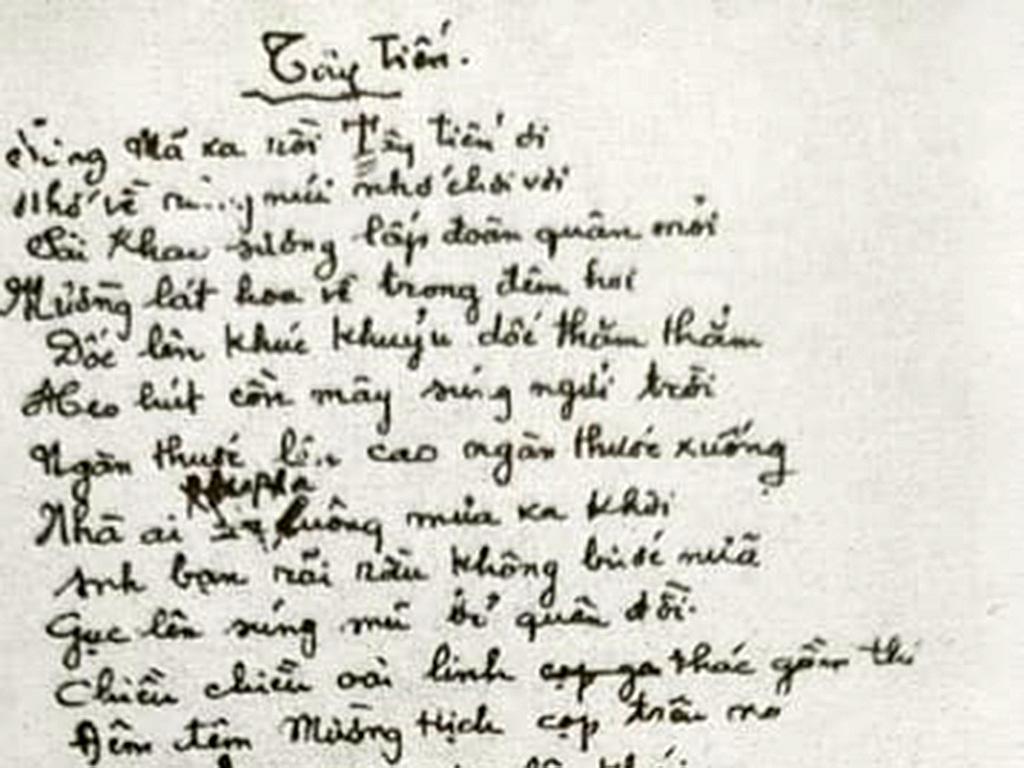 Tây Tiến.
Sông Mã xa rồi Tây tiến ơi
Nhớ về rừng núi nhớ chơi vơi
Sài Khao sương lấp đoàn quân mỏi
Mường lát hoa về trong đêm hơi
Dốc lên khúc khuỷu dốc thăm thẳm
Heo hút cồn mây súng ngửi trời
Ngàn thước lên cao ngàn thước xuống
Nhà ai luông mưa xa khơi
Anh bạn rãi rầu không bước nữa
Gục lên súng mũ bỏ quên đời.
Chiều chiều oài linh cọp ga thác gầm thé
Đêm đêm Mường Hịch cọp trêu ng